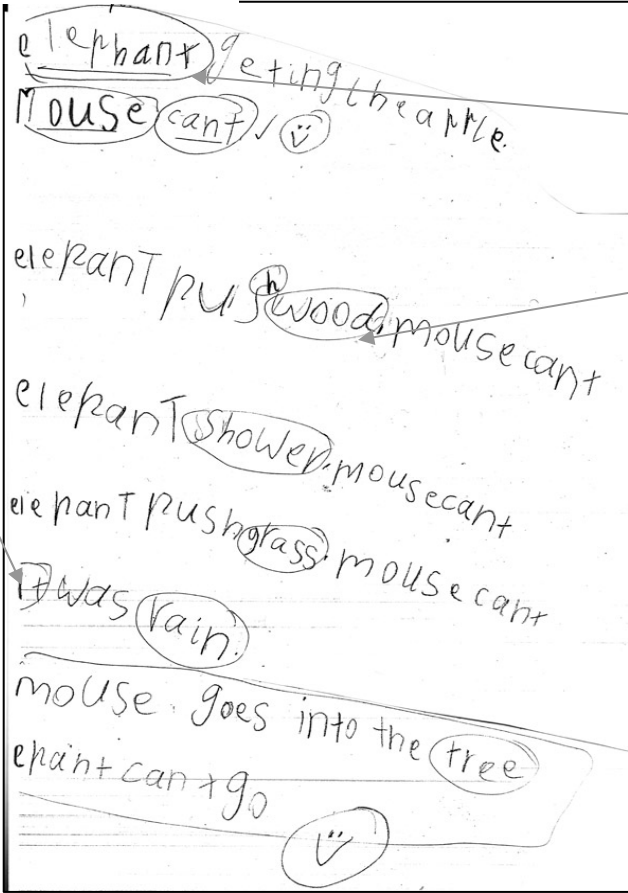 elephant geting the apple.
Mouse cant
elepanT push wood. mouse cant
elepanT shower. mouse cant
elepanT push grass. mouse cant
It was rain.
mouse goes into the tree
epant cant go